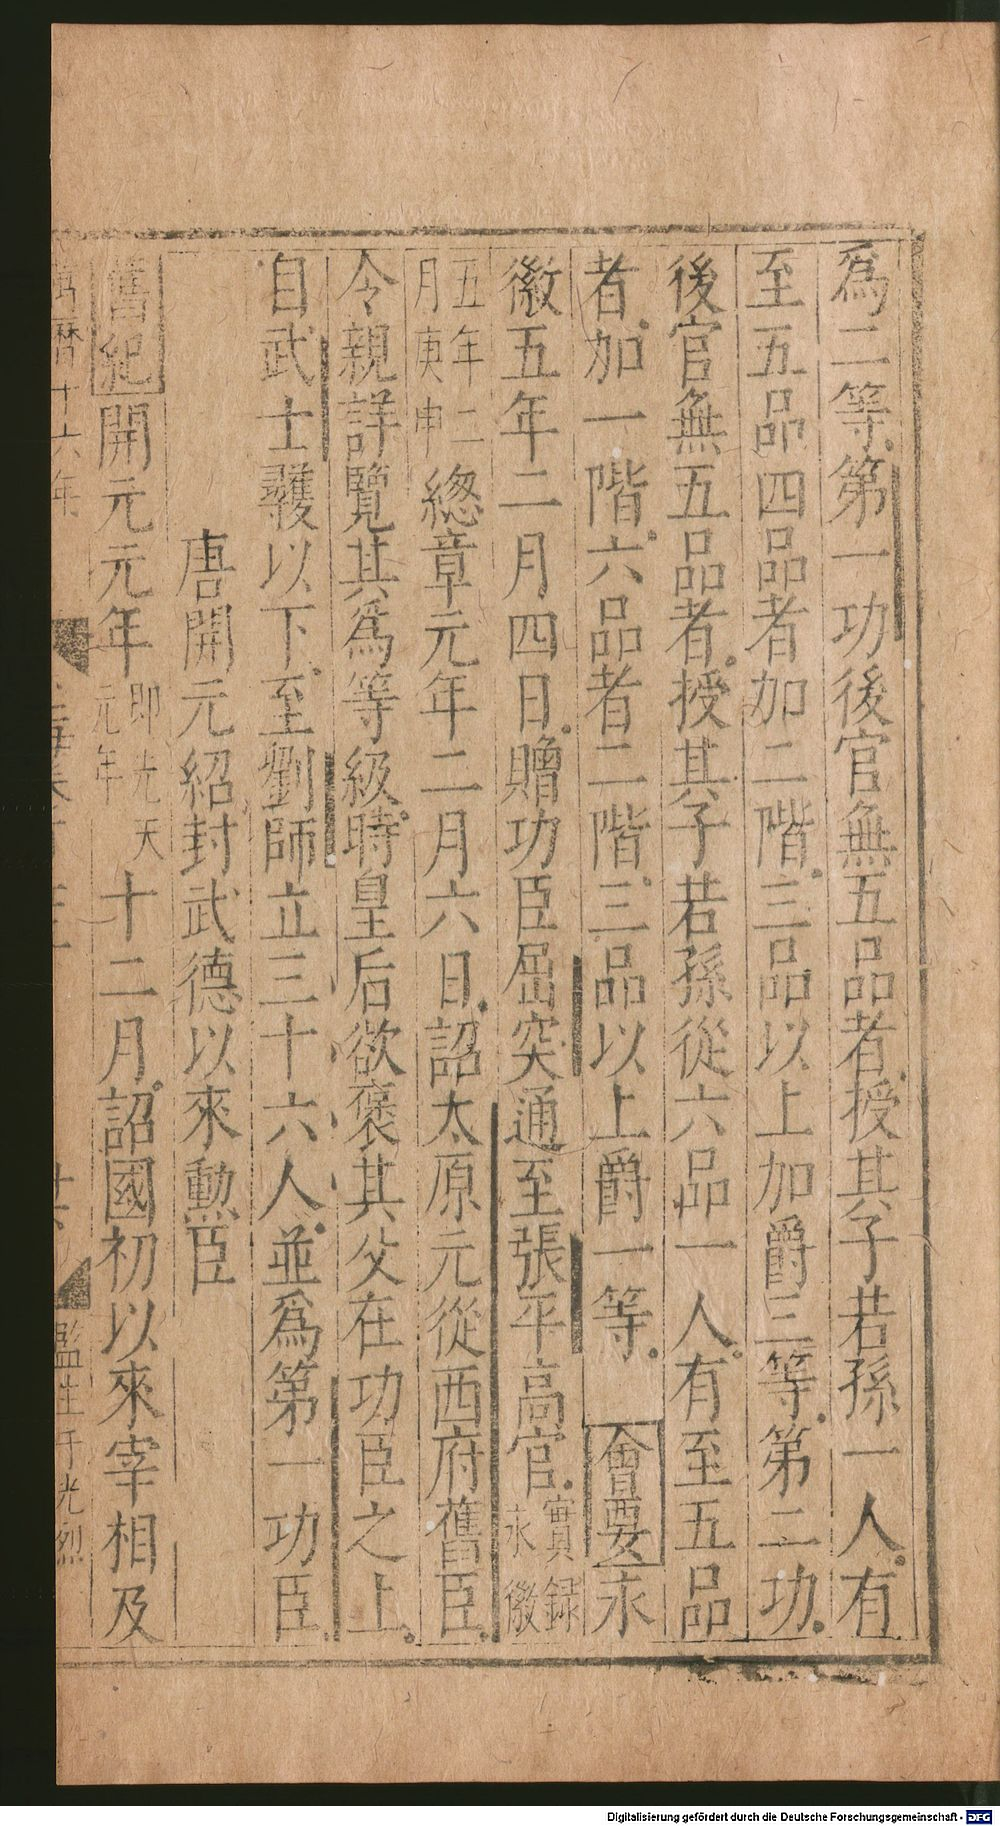 爲二等。第一功後官無五品者。授其子若孫一人。有
至五品四品者加二階。三品以上加爵三等。第二功。
後官無五品者。授其子若孫從六品一人。有至五品
者。加一階。六品者二階。三品以上爵一等。會要永
徽五年二月四日。贈功臣屈突通至張平高官。實録永徽
五年二月庚申總章元年二月六日。詔太原元從西府舊臣。
令親詳覽其爲等級。時皇后欲褒其父在功臣之上。
自武士彠以下。至劉師立三十六人。並爲第一功臣。
唐開元紹封武德以來勳臣
舊紀開元元年即先天元年十二月。詔國初以來宰相及
萬曆十六年
廿六
監生 光烈
Digitalisierung gefördert durch die Deutsche Forschungsgemeinschaft - DFG